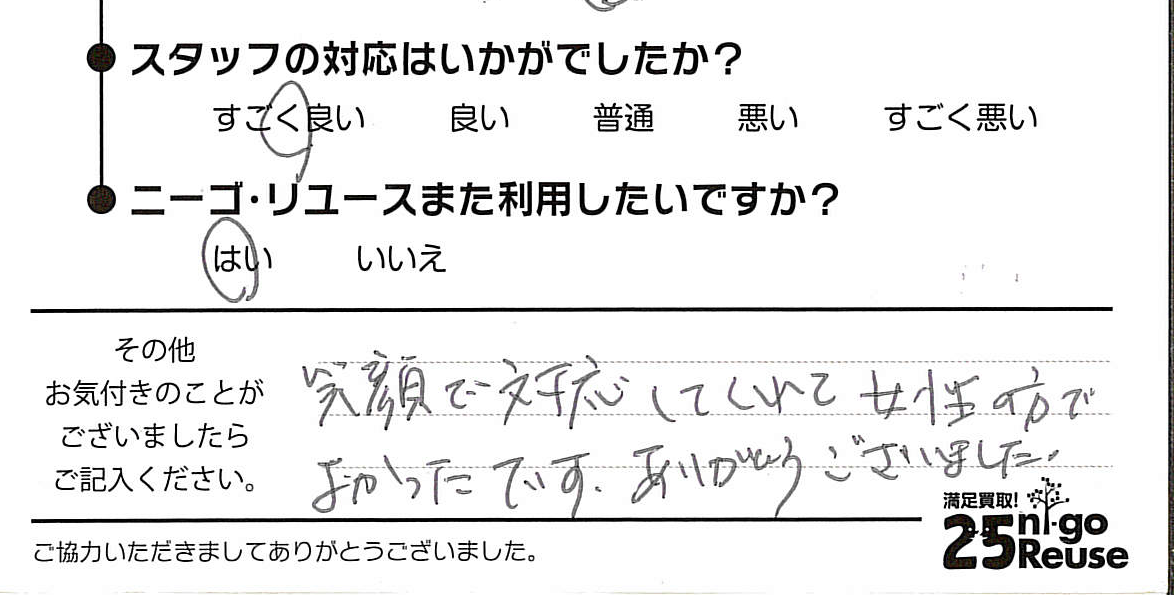 スタッフの対応はいかがでしたか？
すごく良い 良い 普通 悪い すごく悪い
ニーゴ・リユースまた利用したいですか？
はい いいえ
その他
お気付きのことが
ございましたら
ご記入ください。
笑顔で対応してくれて女性の方で
よかったです。ありがとうございました。
満足買取!
25 ni-go
Reuse
ご協力いただきましてありがとうございました。